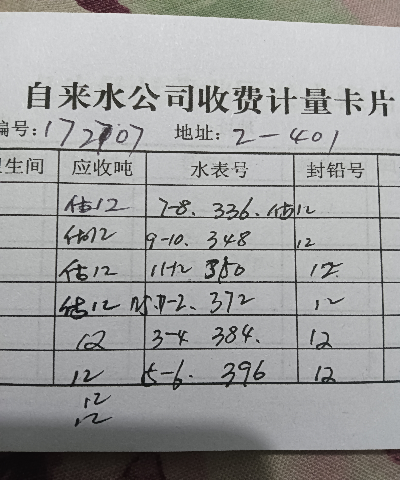 自来水公司收费计量卡片
编号:172707 地址:2-401
卫生间 应收吨 水表号 封铅号
估12 7-8. 336. 估12
估12 9-10. 348 12
估12 11-12 350 12
估12 1-2. 372 12
12 3-4 384. 12
12 5-6. 396 12
12
12